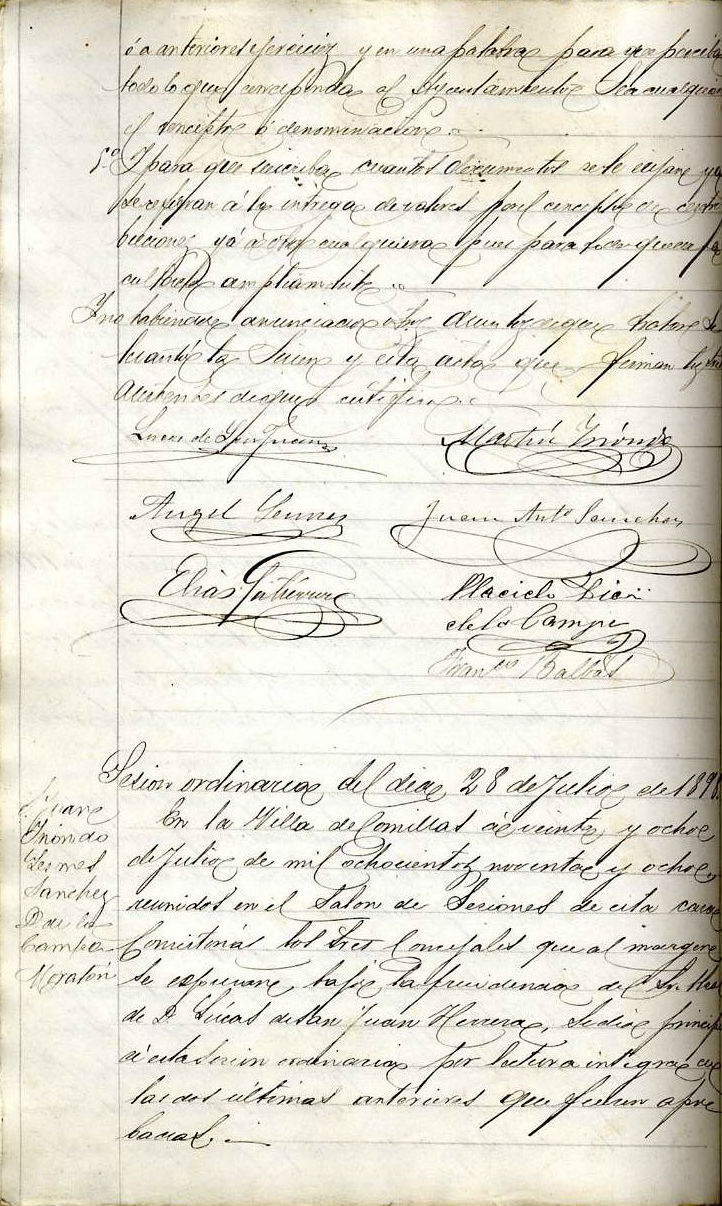 ó a anteriores ejercicios y en una palabra para que perciba
todo lo que corresponda al Ayuntamiento sea cualquiera
el concepto ó denominacion.
5º Y para que suscriba cuantos documentos se le exijan y que
se refieran á la entrega de valores por el concepto de contri
buciones yá á otro cualquiera pues para todo queda fa
cultado ampliamente.
Y no habiendose anunciado otro asunto de que tratar se
levantó la Sesion y esta acta que firman los Sres
asistentes de que certifico.
Lucas de San Juan
Martin Inónido
Angel Lesmes
Juan Antº Sanchez
Elias Gutierrez
Placido Diaz
de la Campa
Franco Balbás
Sesion ordinaria del dia 28 de Julio de 1898
Juan
Inónido
Lesmes
Sanchez
D de la
Campa
Moratón
En la Villa de Comillas á veinte y ocho
de Julio de mil ochocientos noventa y ocho,
reunidos en el Salon de Sesiones de esta casa
Consistorial los Sres Concejales que al margen
se espresan, bajo la presidencia del Sr. Alcal
de D. Lúcas de San Juan Herrera, se dió principio
á esta sesion ordinaria por lectura integra de
las dos últimas anteriores que fueron apro
badas.